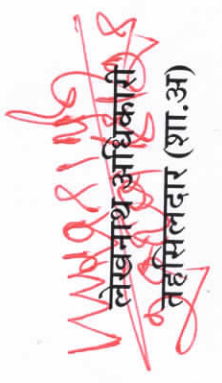 लेखनाथ अधिकारी
तहसिलदार (शा.अ)